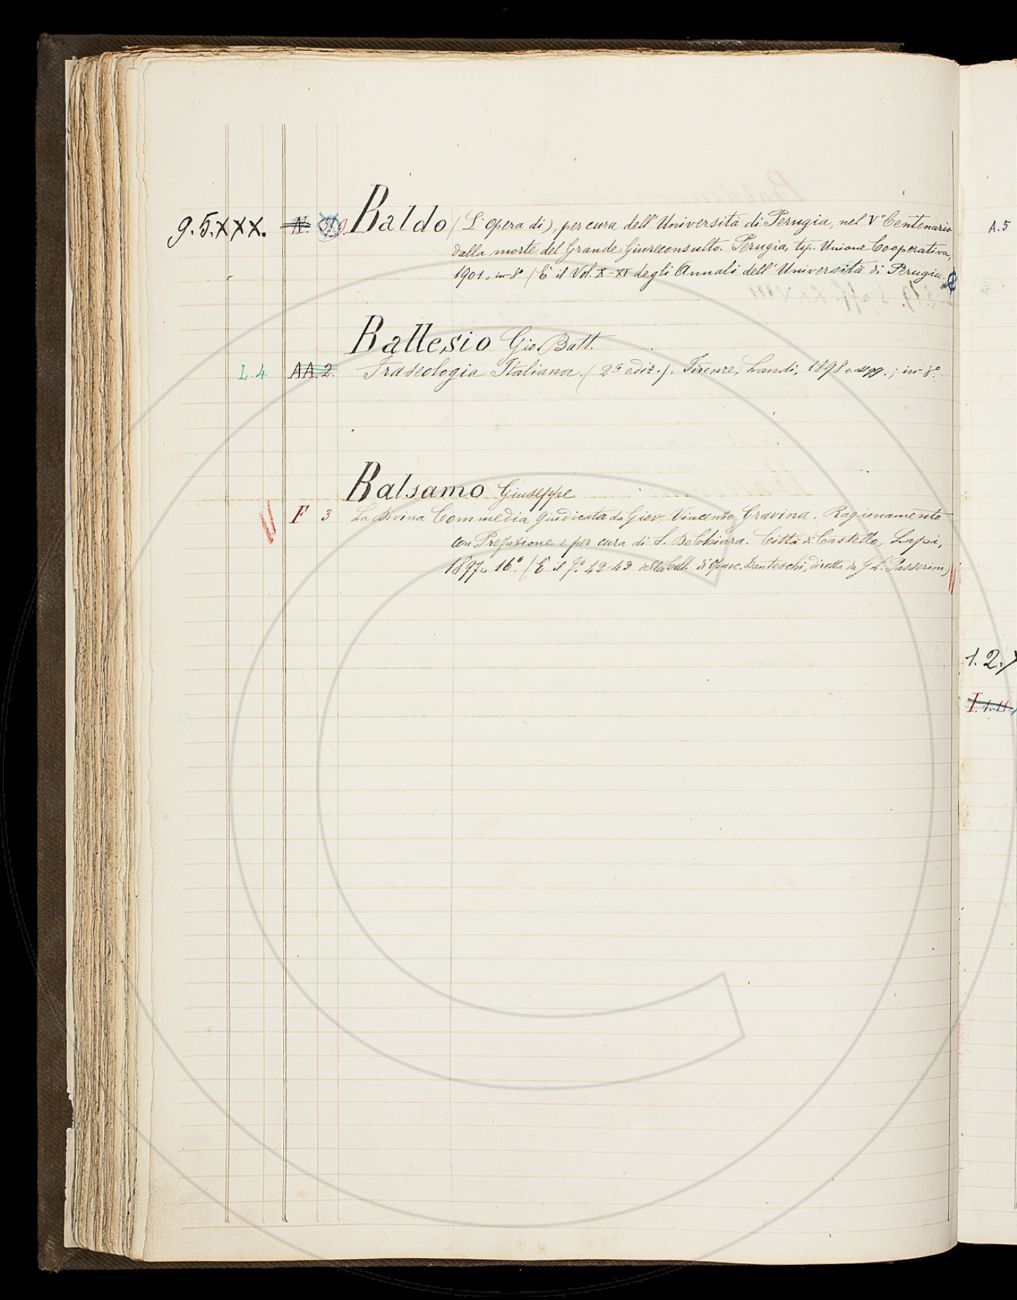 9.5.XXX. N. Baldo (L'opera di), per cura dell'Università di Perugia, nel V° Centenario
dalla morte del Grande Giureconsulto. Perugia, tip. Unione Cooperativa,
1901. in-8° (È il Vol. X-XI degli Annali dell'Università di Perugia.
Ballesio Gio. Batt.
L. 4 AA. 2. Fraseologia Italiana. (2ª ediz.). Firenze, Landi, 1898 ; in-8°.
Balsamo Giuseppe
F 3 La Divina Commedia giudicata da Giov. Vincenzo Gravina. Ragionamento
con Prefazione e per cura di Città di Castello, Lapi,
1897. 16°. (È il 42-43 della Coll. di Opusc. Danteschi, diretta da G. L. Passerini)
A.5
1.2.
I.